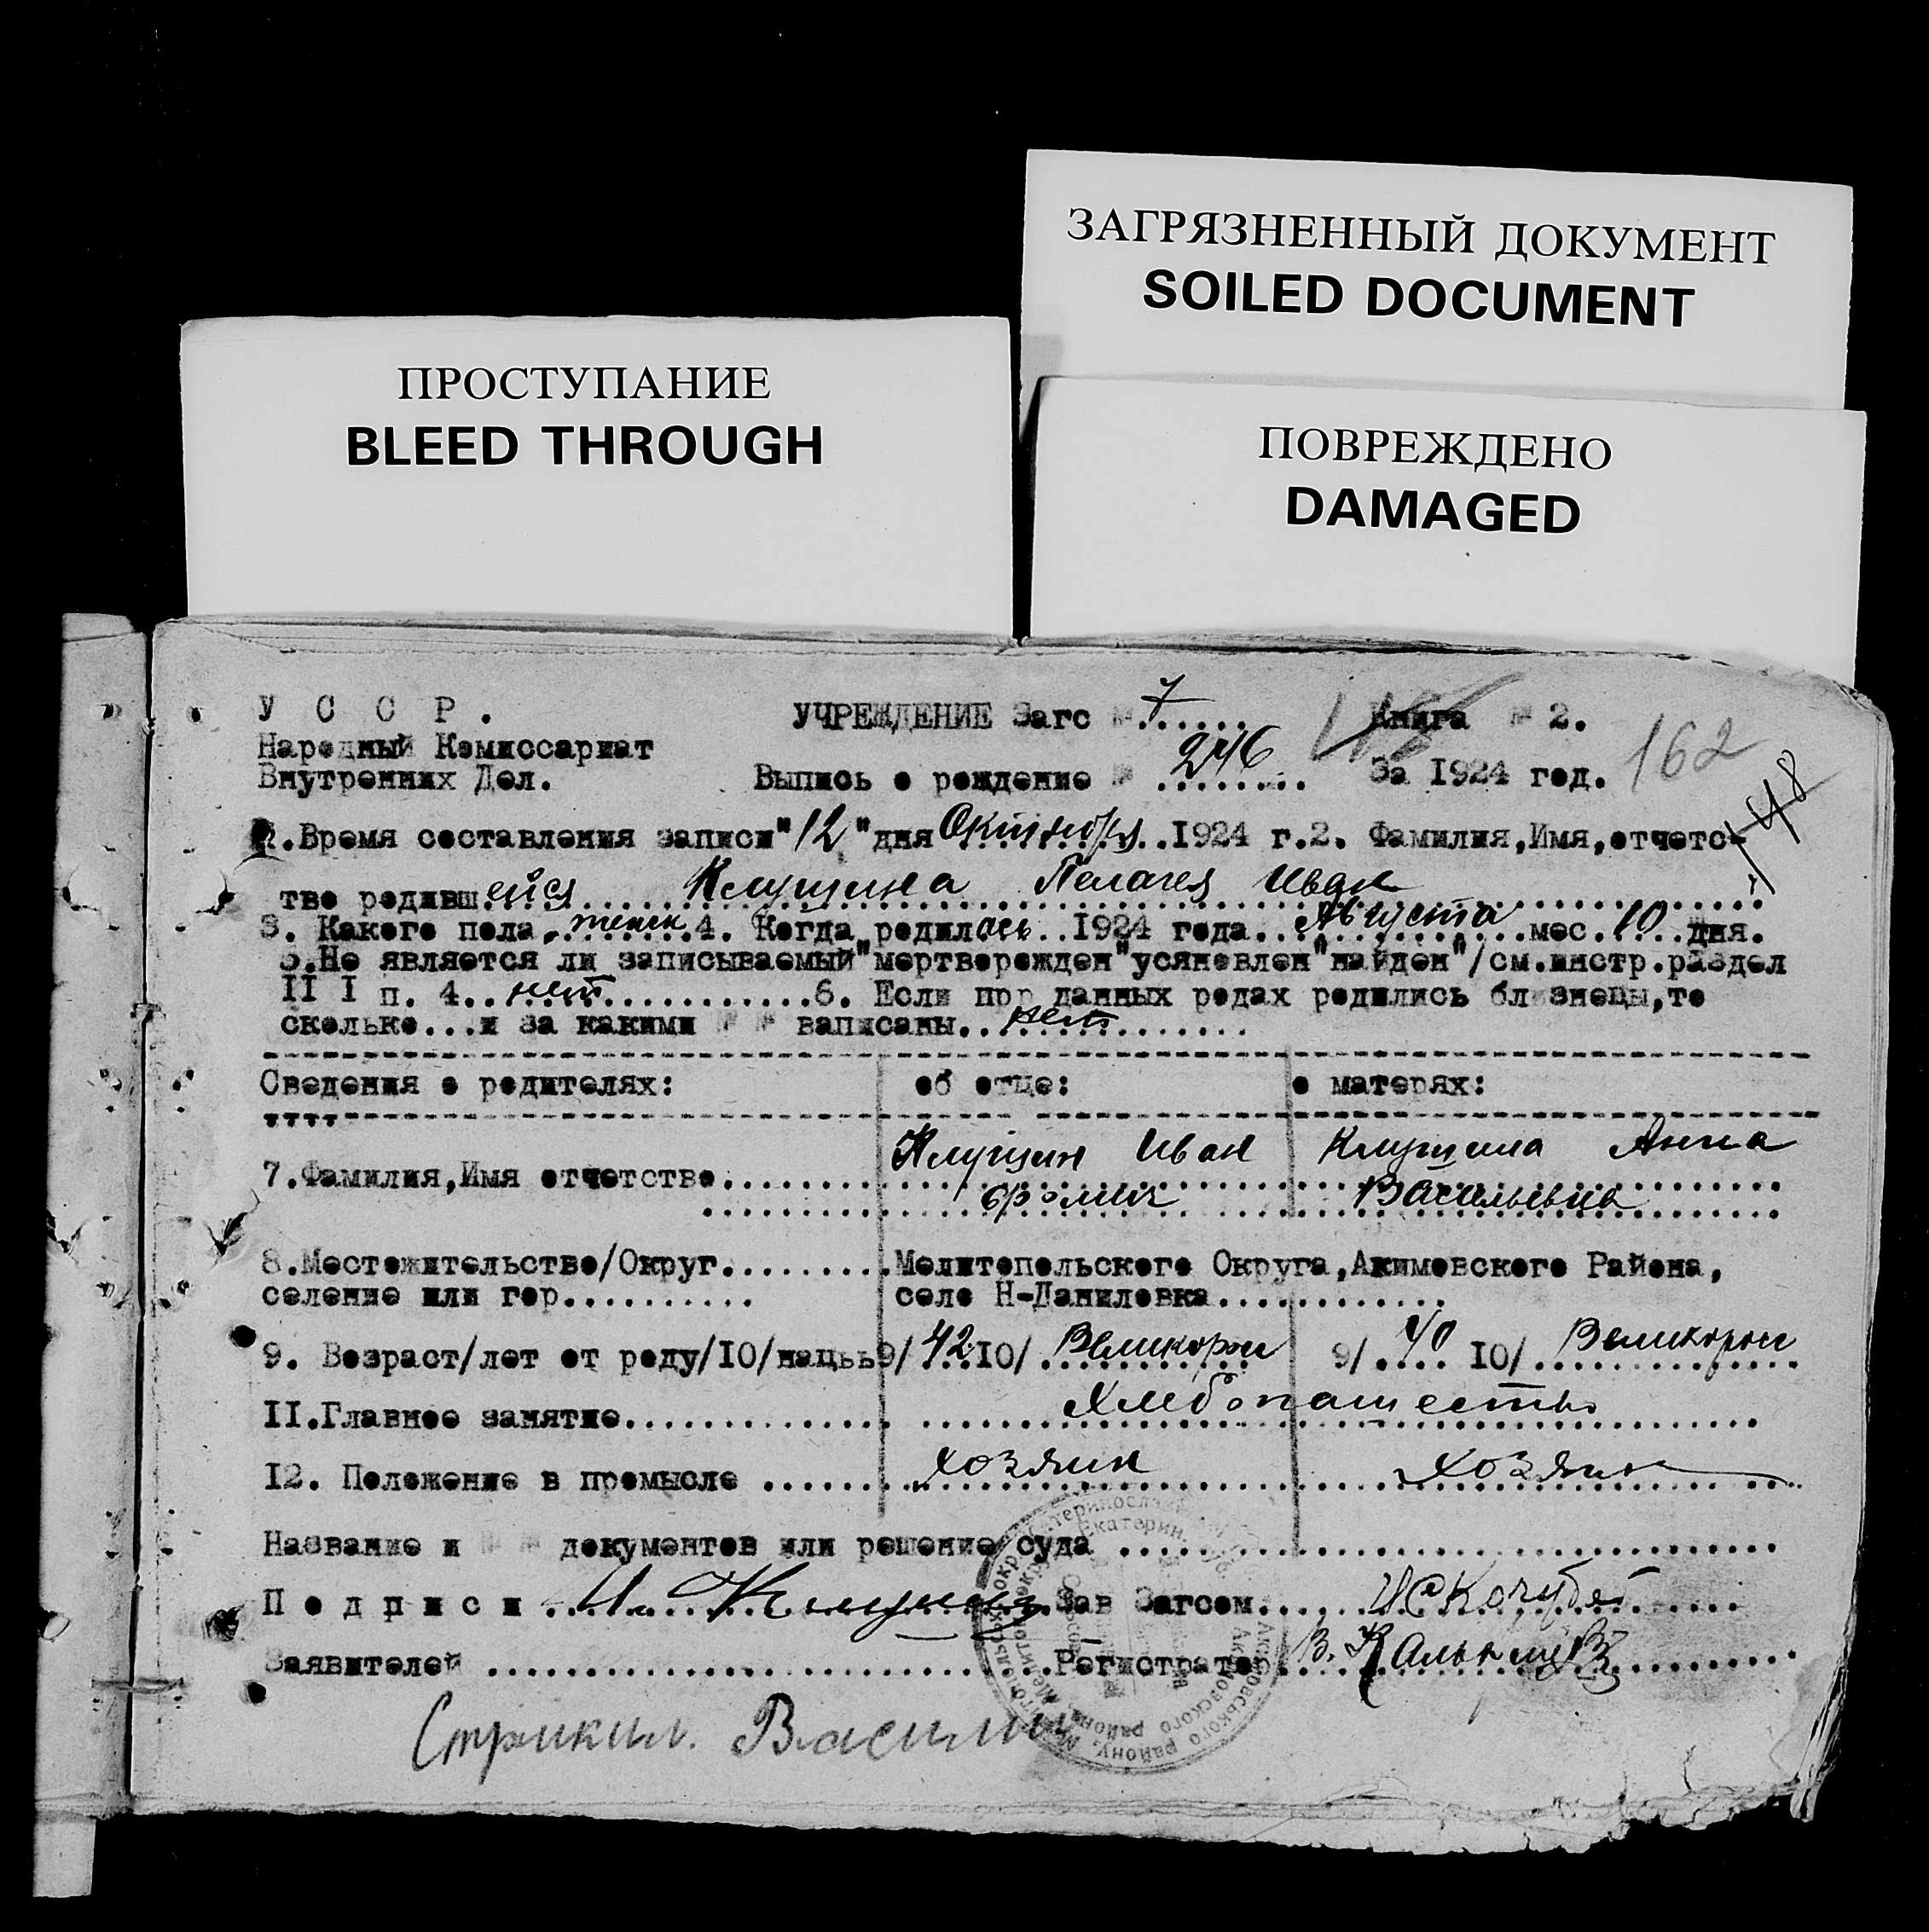 ЗАГРЯЗНЕННЫЙ ДОКУМЕНТ
SOILED DOCUMENT
ПРОСТУПАНИЕ
BLEED THROUGH
ПОВРЕЖДЕНО
DAMAGED
У С С Р. УЧРЕЖДЕНИЕ Загс № 7...... Книга № 2.
Народный Комиссариат 162
Внутренних Дел. Выпись о рождение № 246........ За 1924 год.
148
1.Время составления записи"12"дня Октября..1924 г.2. Фамилия,Имя,отчетс-
тво родившейся..... Клущина Пелагея Иван
3. Какого пола.женск.4. Когда родилась..1924 года..Августа..мес.10..дня.
5.Не является ли записываемый"мертворожден"усяновлен"найден"/см.инстр.раздел
II I п. 4..нет...........6. Если прр данных родах родились близнецы,то
сколько...и за какими № № записаны..нет........
Сведения о родителях: об отце: о матерях:
7.Фамилия,Имя отчетство......... Клущин Иван Клущина Анна
Васильевна
8.Местожительство/Округ.........Мелитопольского Округа,Акимовского Района,
селение или гор.......... село Н-Даниловка............
9. Возраст/лет от роду/10/нацьь9/42.10/ Великорос 9/ 40 10/ Великорос
II.Главное занятие............. Хлебопашество
12. Положение в промысле ....... хозяин хозяин
Название и № № документов или решение суда ..............................
П о д п и с и ..И. Клущин..Зав Загсом......Кочубей
Заявителей .............................Регистратор.В.
Василий